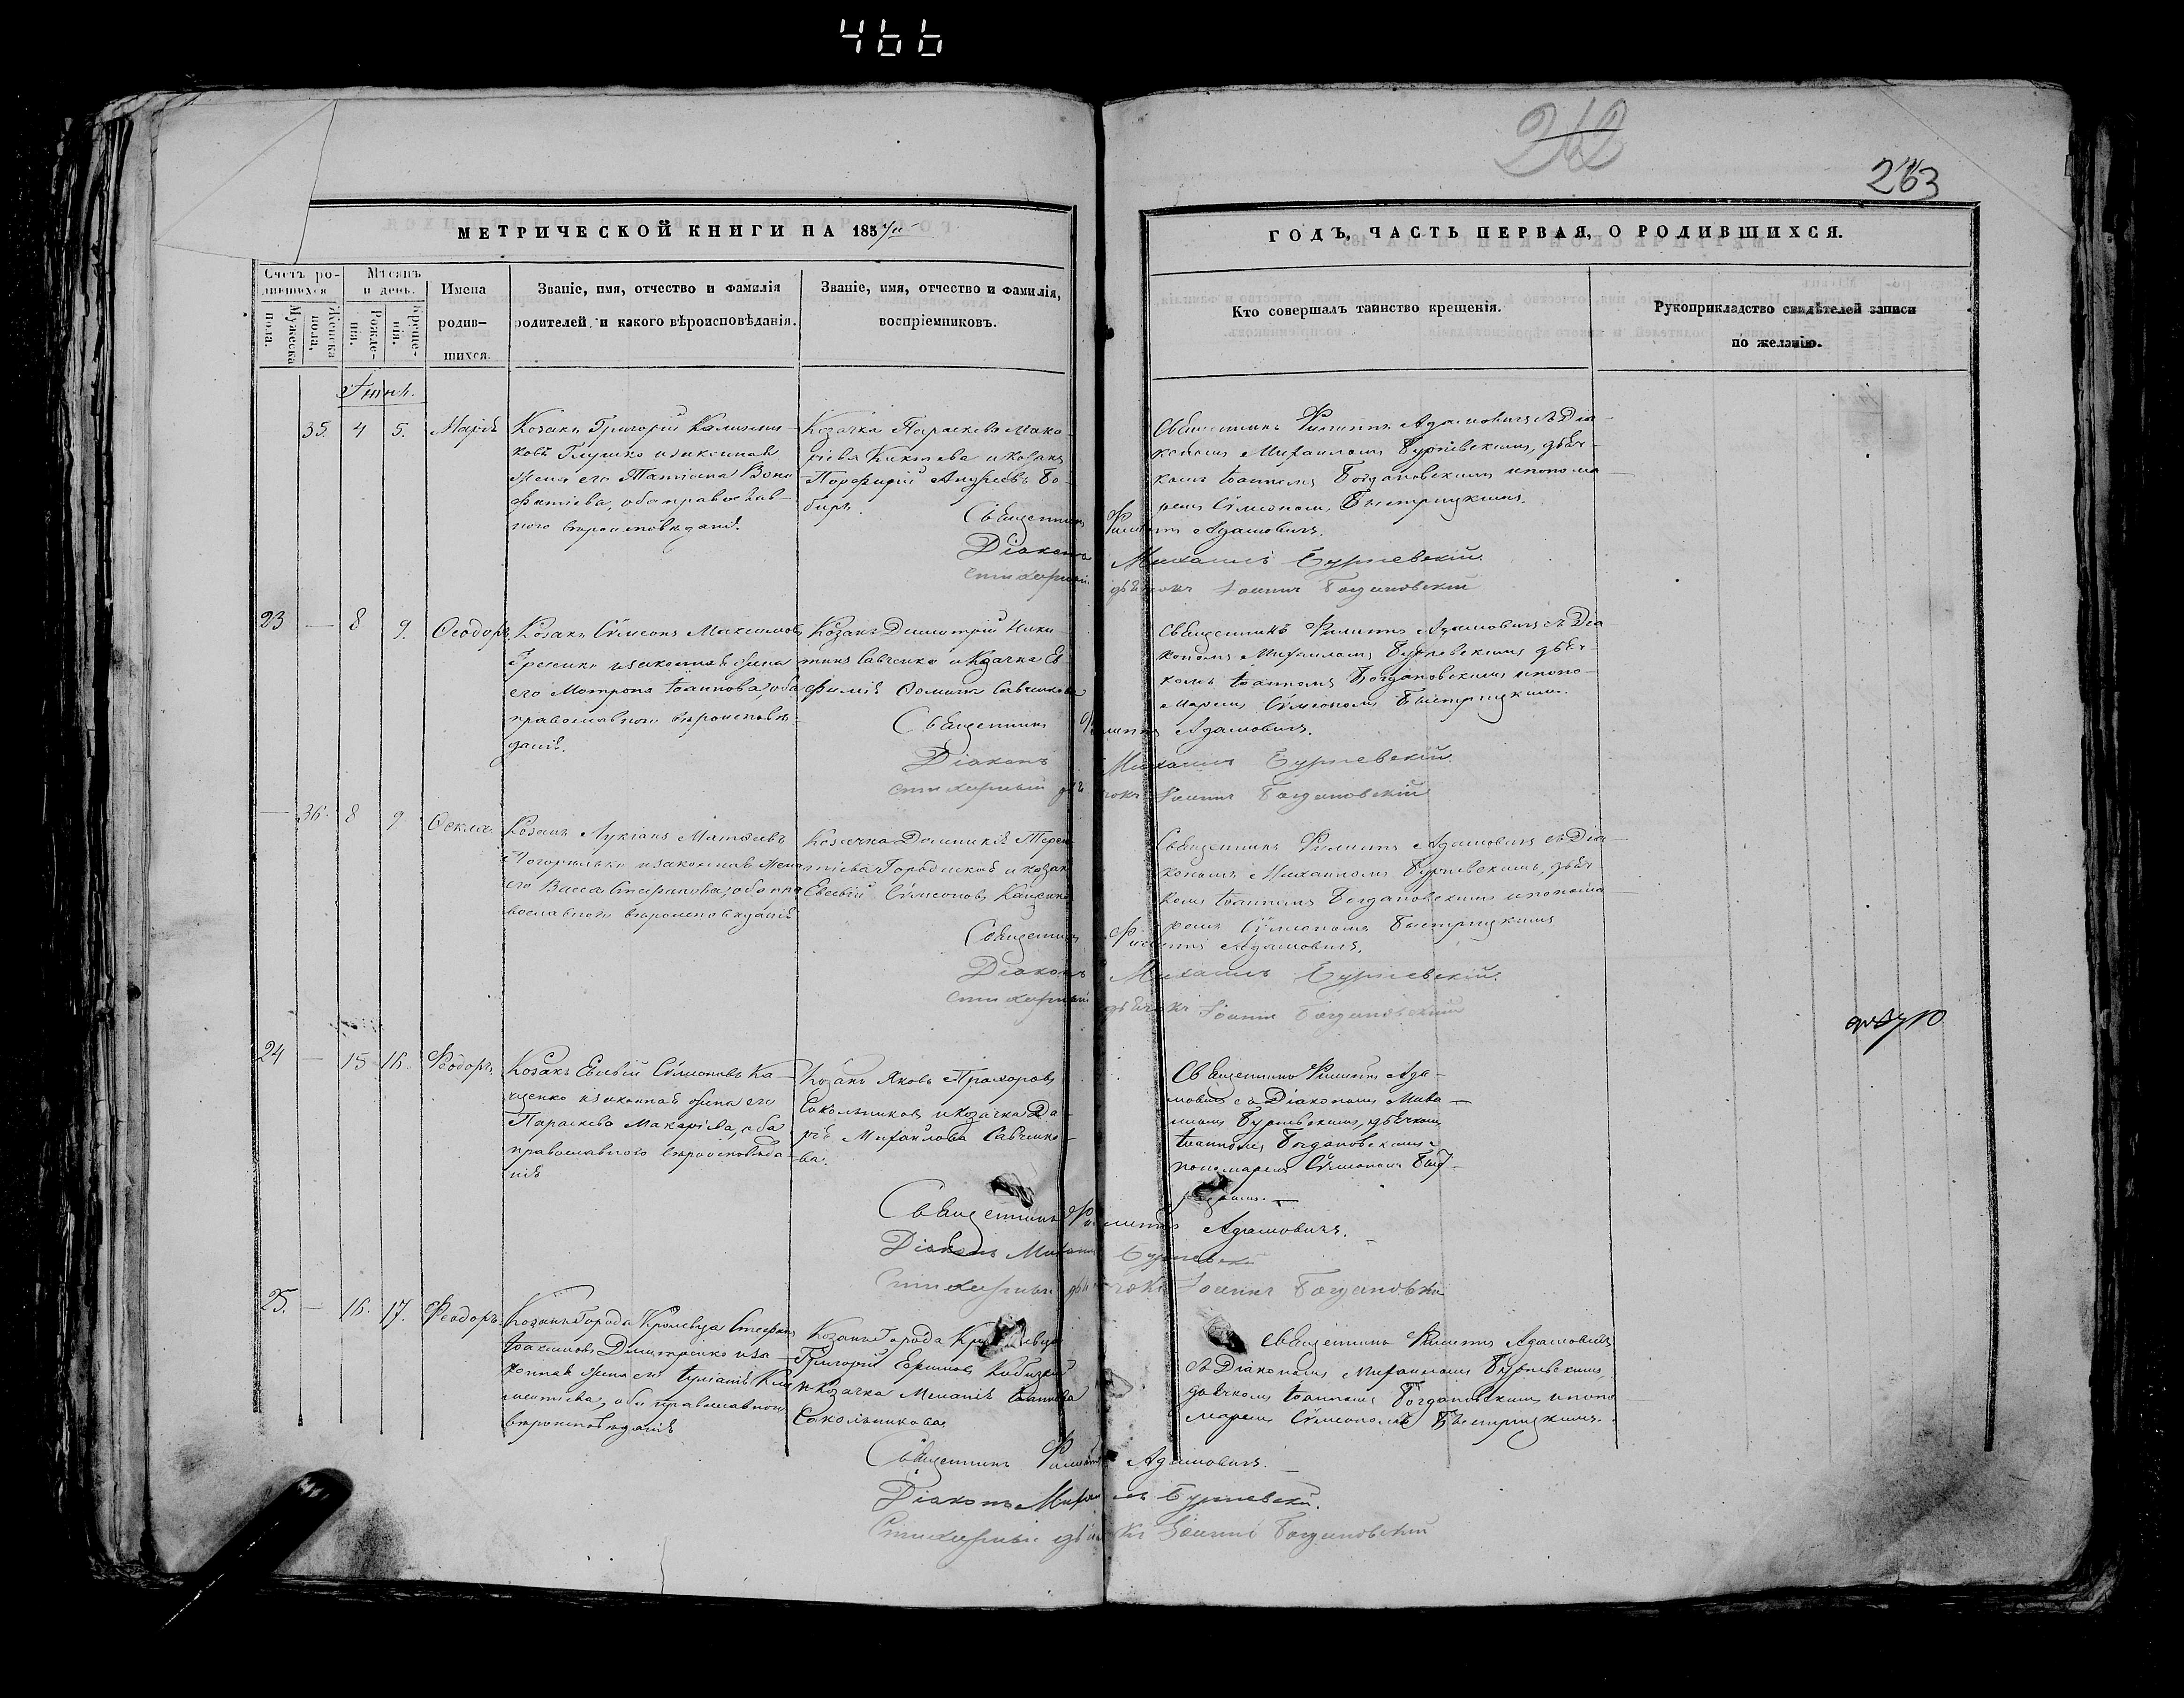 466
262
263
МЕТРИЧЕСКОЙ КНИГИ НА 185
ГОДЪ, ЧАСТЬ ПЕРВАЯ, О РОДИВШИХСЯ.
Счетъ ро-
дившихся
Мужеска
пола.
Женска
пола.
Мѣсяцъ
и день.
Рожде-
нія.
Креще-
нія.
Имена
родив-
шихся.
Званіе, имя, отчество и фамилія
родителей и какого вѣроисповѣданія.
Званіе, имя, отчество и фамилія,
воспріемниковъ.
Кто совершалъ таинство крещенія.
Рукоприкладство свидѣтелей записи
по желанію.
Іюнь.
35. 4 5. Марія
Козакъ Григорій
Глушко и законная
жена его Татіана Вони
фатіева, оба православ-
ного вѣроисповѣданія.
Козачка Параскева Мака-
ріева и козакъ
Порфирій Андреевъ Бо-
Священникъ Филиппъ Адамовичъ съ Діа-
кономъ Михаиломъ Бурчевскимъ, дьяч-
комъ Іоанномъ Богдановскимъ и понома-
ремъ Сѵмеономъ Быстрицкимъ.
Священникъ Филиппъ Адамовичъ.
Діаконъ Михаилъ Бурчевскій.
Стихарный дьячокъ Іоаннъ Богдановскій
23 — 8 9. Ѳеодоръ
Козакъ Сѵмеонъ Максимовъ
и законная жена
его Матрона Іоаннова оба
православного вѣроисповѣ-
данія.
Козакъ Димитрій Ники
тинъ Савченко и Козачка Ев-
фимія Ѳомина Савченкова
Священникъ Филиппъ Адамовичъ съ Діа
кономъ Михаиломъ Бурчевскимъ дьяч-
комъ Іоанномъ Богдановскимъ и поно-
маремъ Сѵмеономъ Быстрицкимъ.
Священникъ Филиппъ Адамовичъ.
Діаконъ Михаилъ Бурчевскій.
Стихарный дьячокъ Іоаннъ Богдановскій
— 36. 8 9 Ѳекла.
Козакъ Лукіанъ Матѳеевъ
Погорилько и законная Жена
его Васса Стефанова, оба пра
вославного вѣроисповѣданія
Козачка Домникія Терен
тіева и козакъ
Евсевій Сѵмеоновъ Каценко
Священникъ Филиппъ Адамовичъ съ Діа
кономъ Михаиломъ Бурчевскимъ, дьяч
комъ Іоанномъ Богдановскимъ и понома
ремъ Сѵмеономъ Быстрицкимъ
Священникъ Филиппъ Адамовичъ.
Діаконъ Михаилъ Бурчевскій.
Стихарный дьячокъ Іоаннъ Богдановскій
24 — 15 16. Ѳеодоръ.
Козакъ Евсевій Сѵмеоновъ Ка-
ценко и законная жена его
Параскева Макаріева, оба
православного вѣроисповѣда
нія
Козакъ Яковъ Прохоровъ
Сокольниковъ и козачка Да-
рія Михайлова Савченко-
ва.
Священникъ Филиппъ Ада-
мовичъ съ Діакономъ Миха-
иломъ Бурчевскимъ, дьячкомъ
Іоанномъ Богдановскимъ и
пономаремъ Сѵмеономъ
Священникъ Филиппъ Адамовичъ.
Діаконъ Михаилъ Бурчевскій
Стихарный дьячокъ Іоаннъ Богдановскій
25. — 16. 17. Ѳеодоръ.
Козакъ Города Кролевца Стефанъ
Іоакимовъ Дмитренко и за-
конная Жена его Іуліанія Кли
ментіева, оба православного
вѣроисповѣданія
Козакъ Города Кролевца
Григорій Ефимовъ
и Козачка Меланія Іоаннова
Сокольникова.
Священникъ Филиппъ Адамовичъ
съ Діакономъ Михаиломъ Бурчевскимъ,
дьячкомъ Іоанномъ Богдановскимъ и поно
маремъ Сѵмеономъ Быстрицкимъ.
Священникъ Филиппъ Адамовичъ.
Діаконъ Михаилъ Бурчевскій.
Стихарный дьячокъ Іоаннъ Богдановскій